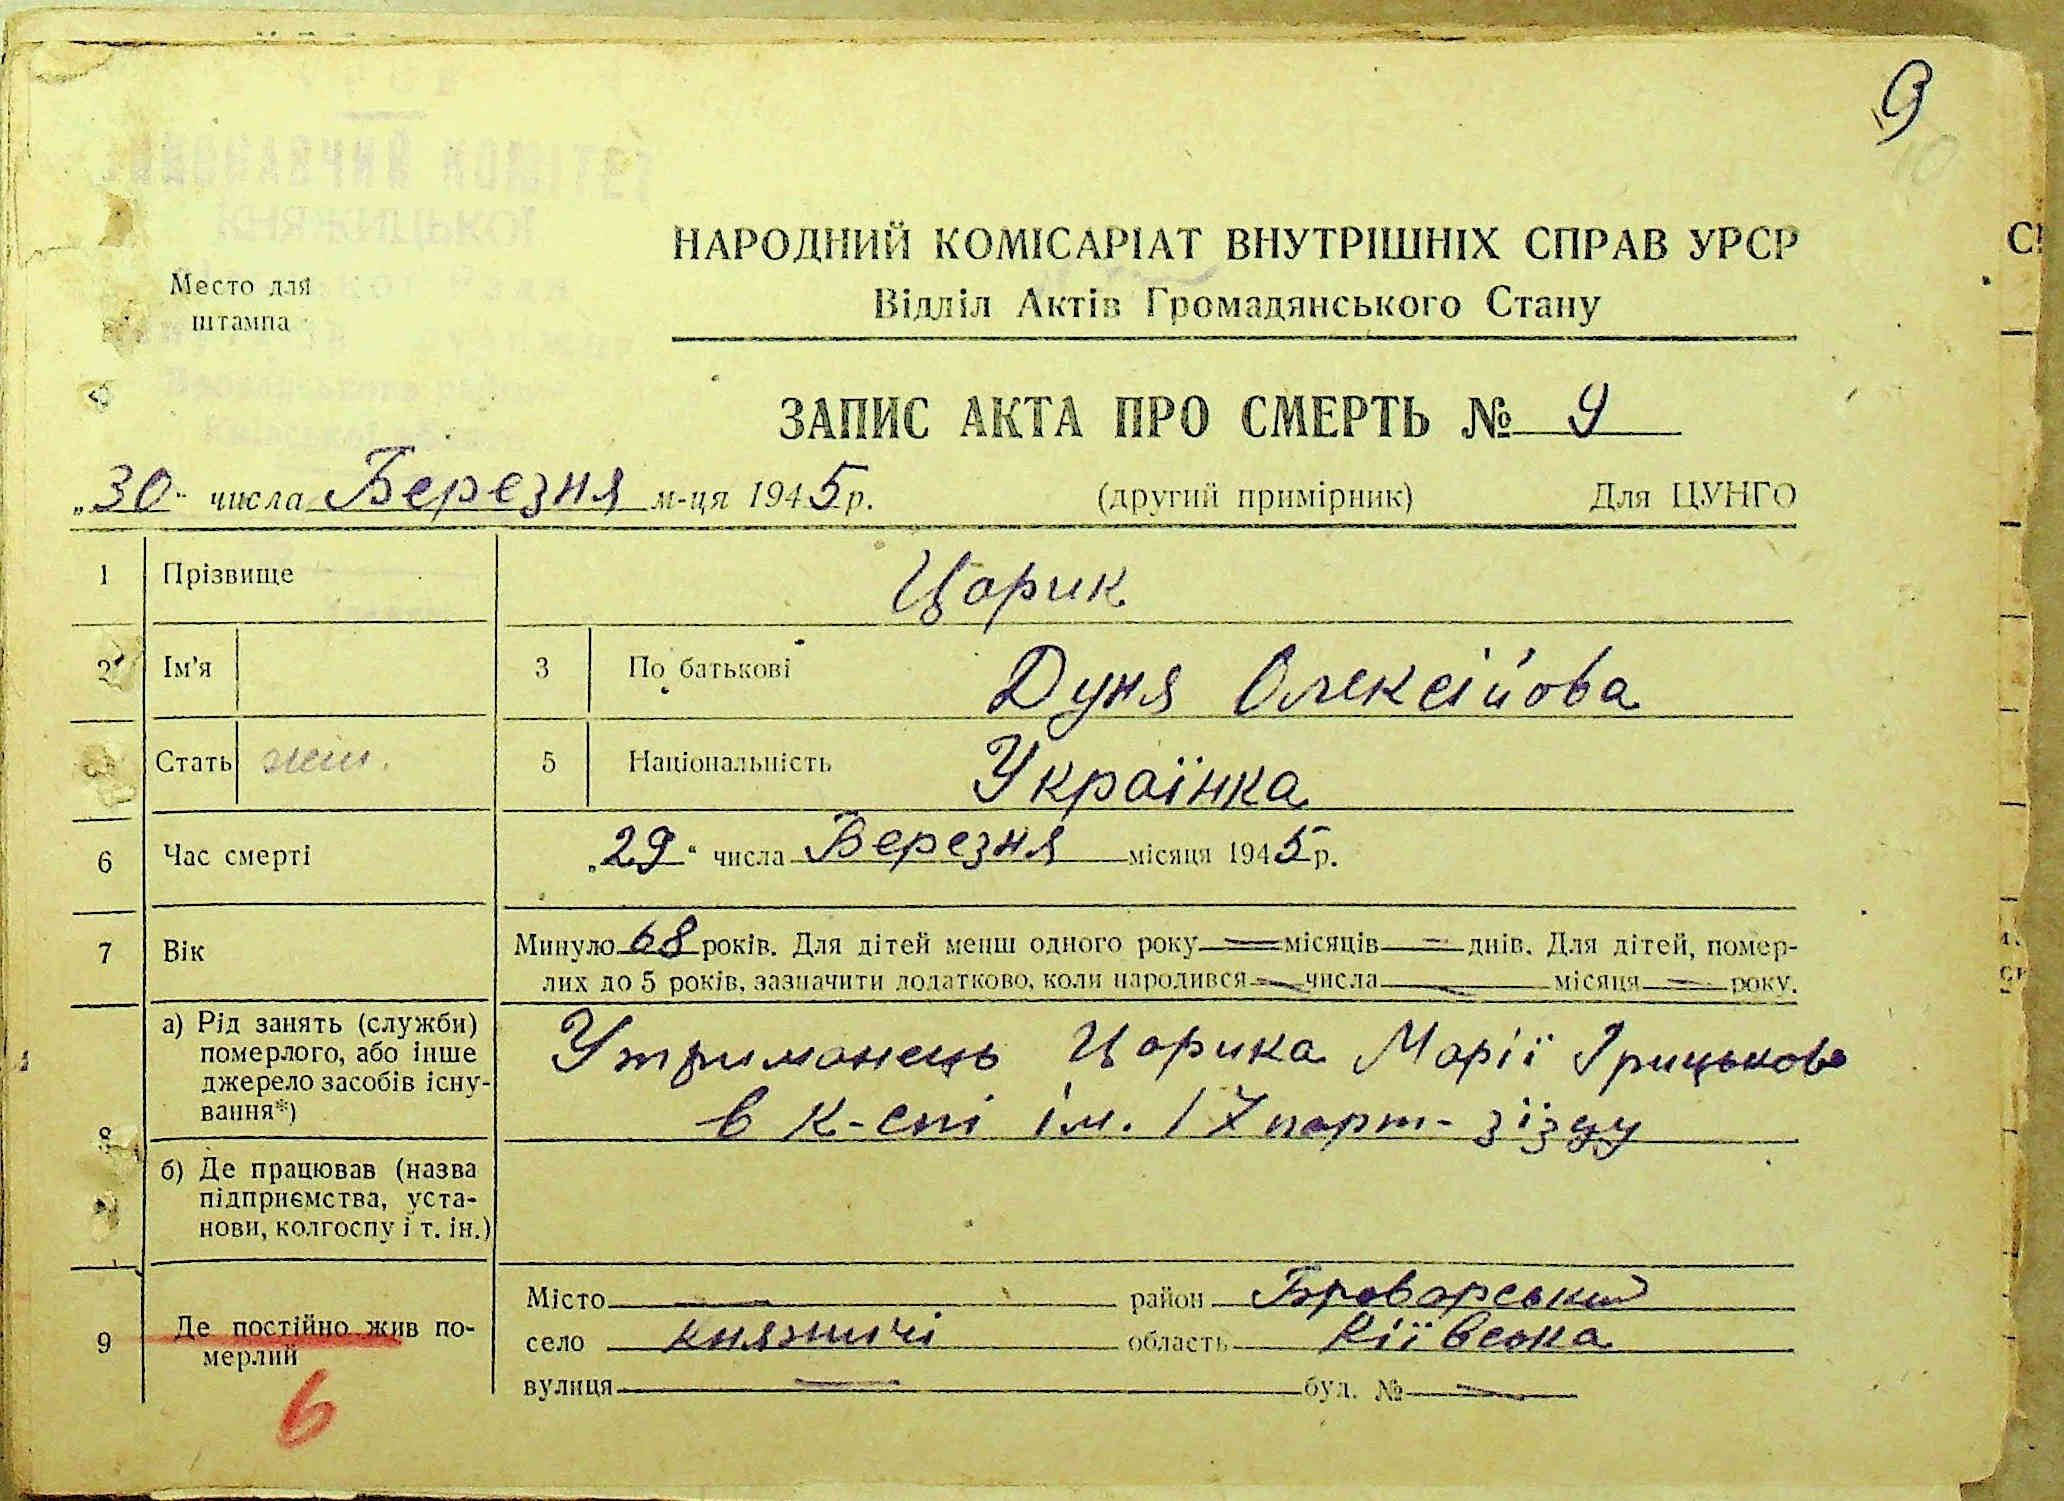 9
10
НАРОДНИЙ КОМІСАРІАТ ВНУТРІШНІХ СПРАВ УРСР
Відділ Актів Громадянського Стану
Место для
штампа
ЗАПИС АКТА ПРО СМЕРТЬ № 9
„30" числа Березня м-ця 1945 р. (другий примірник) Для ЦУНГО
1 Прізвище Царик
2 Ім'я 3 По батькові Дуня Олексійова
Стать жін. 5 Національність Українка
6 Час смерті „29" числа Березня місяця 1945 р.
7 Вік Минуло 68 років. Для дітей менш одного року — місяців — днів. Для дітей, помер-
лих до 5 років, зазначити додатково, коли народився — числа — місяця — року.
8 а) Рід занять (служби)
померлого, або інше
джерело засобів існу-
вання*)
Утриманець Царика Марії Грицькова
в к-спі ім. 17 парт- зїзду
б) Де працював (назва
підприємства, уста-
нови, колгоспу і т. ін.)
9 Де постійно жив по-
мерлий
Місто — район Броварський
село княжичі область Кіївська
вулиця — буд. № —
6